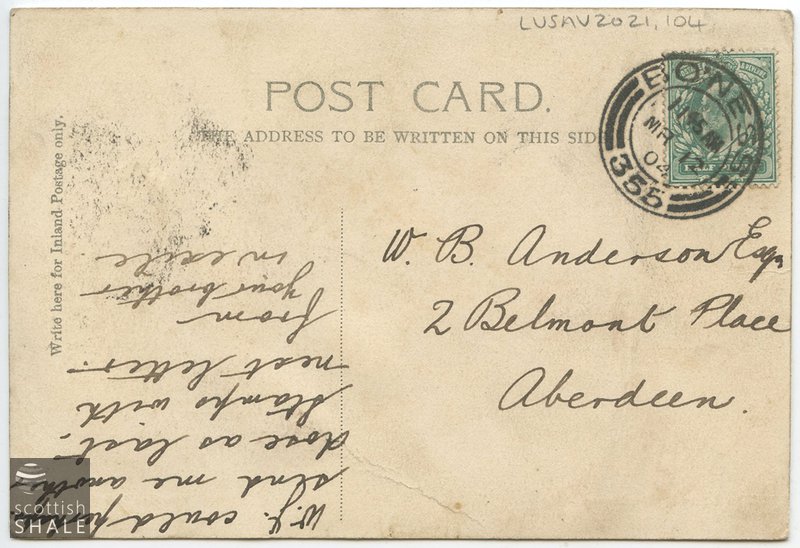 LUSAV2021,104
POST CARD.
THE ADDRESS TO BE WRITTEN ON THIS SIDE
BO'NESS
11 15 AM
MR 12
04
355
Write here for Inland Postage only.
W. B. Anderson Esqr
2 Belmont Place
Aberdeen.
could
send me another
dose as last.
Stamps with
next letter.
from
your brother
in exile
scottish
SHALE